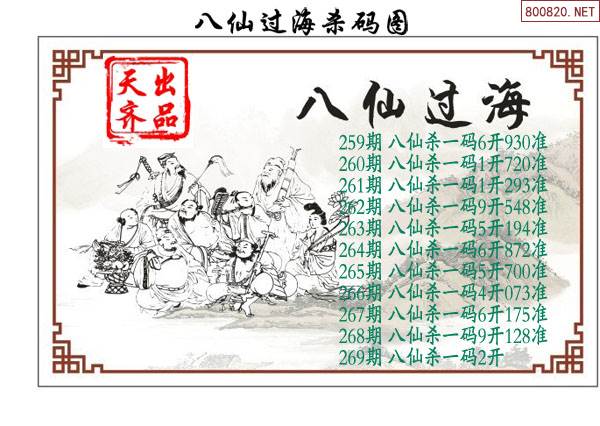 八仙过海杀码图
800820.NET
天齐
出品
八仙过海
259期 八仙杀一码6开930准
260期 八仙杀一码1开720准
261期 八仙杀一码1开293准
262期 八仙杀一码9开548准
263期 八仙杀一码5开194准
264期 八仙杀一码6开872准
265期 八仙杀一码5开700准
266期 八仙杀一码4开073准
267期 八仙杀一码6开175准
268期 八仙杀一码9开128准
269期 八仙杀一码2开